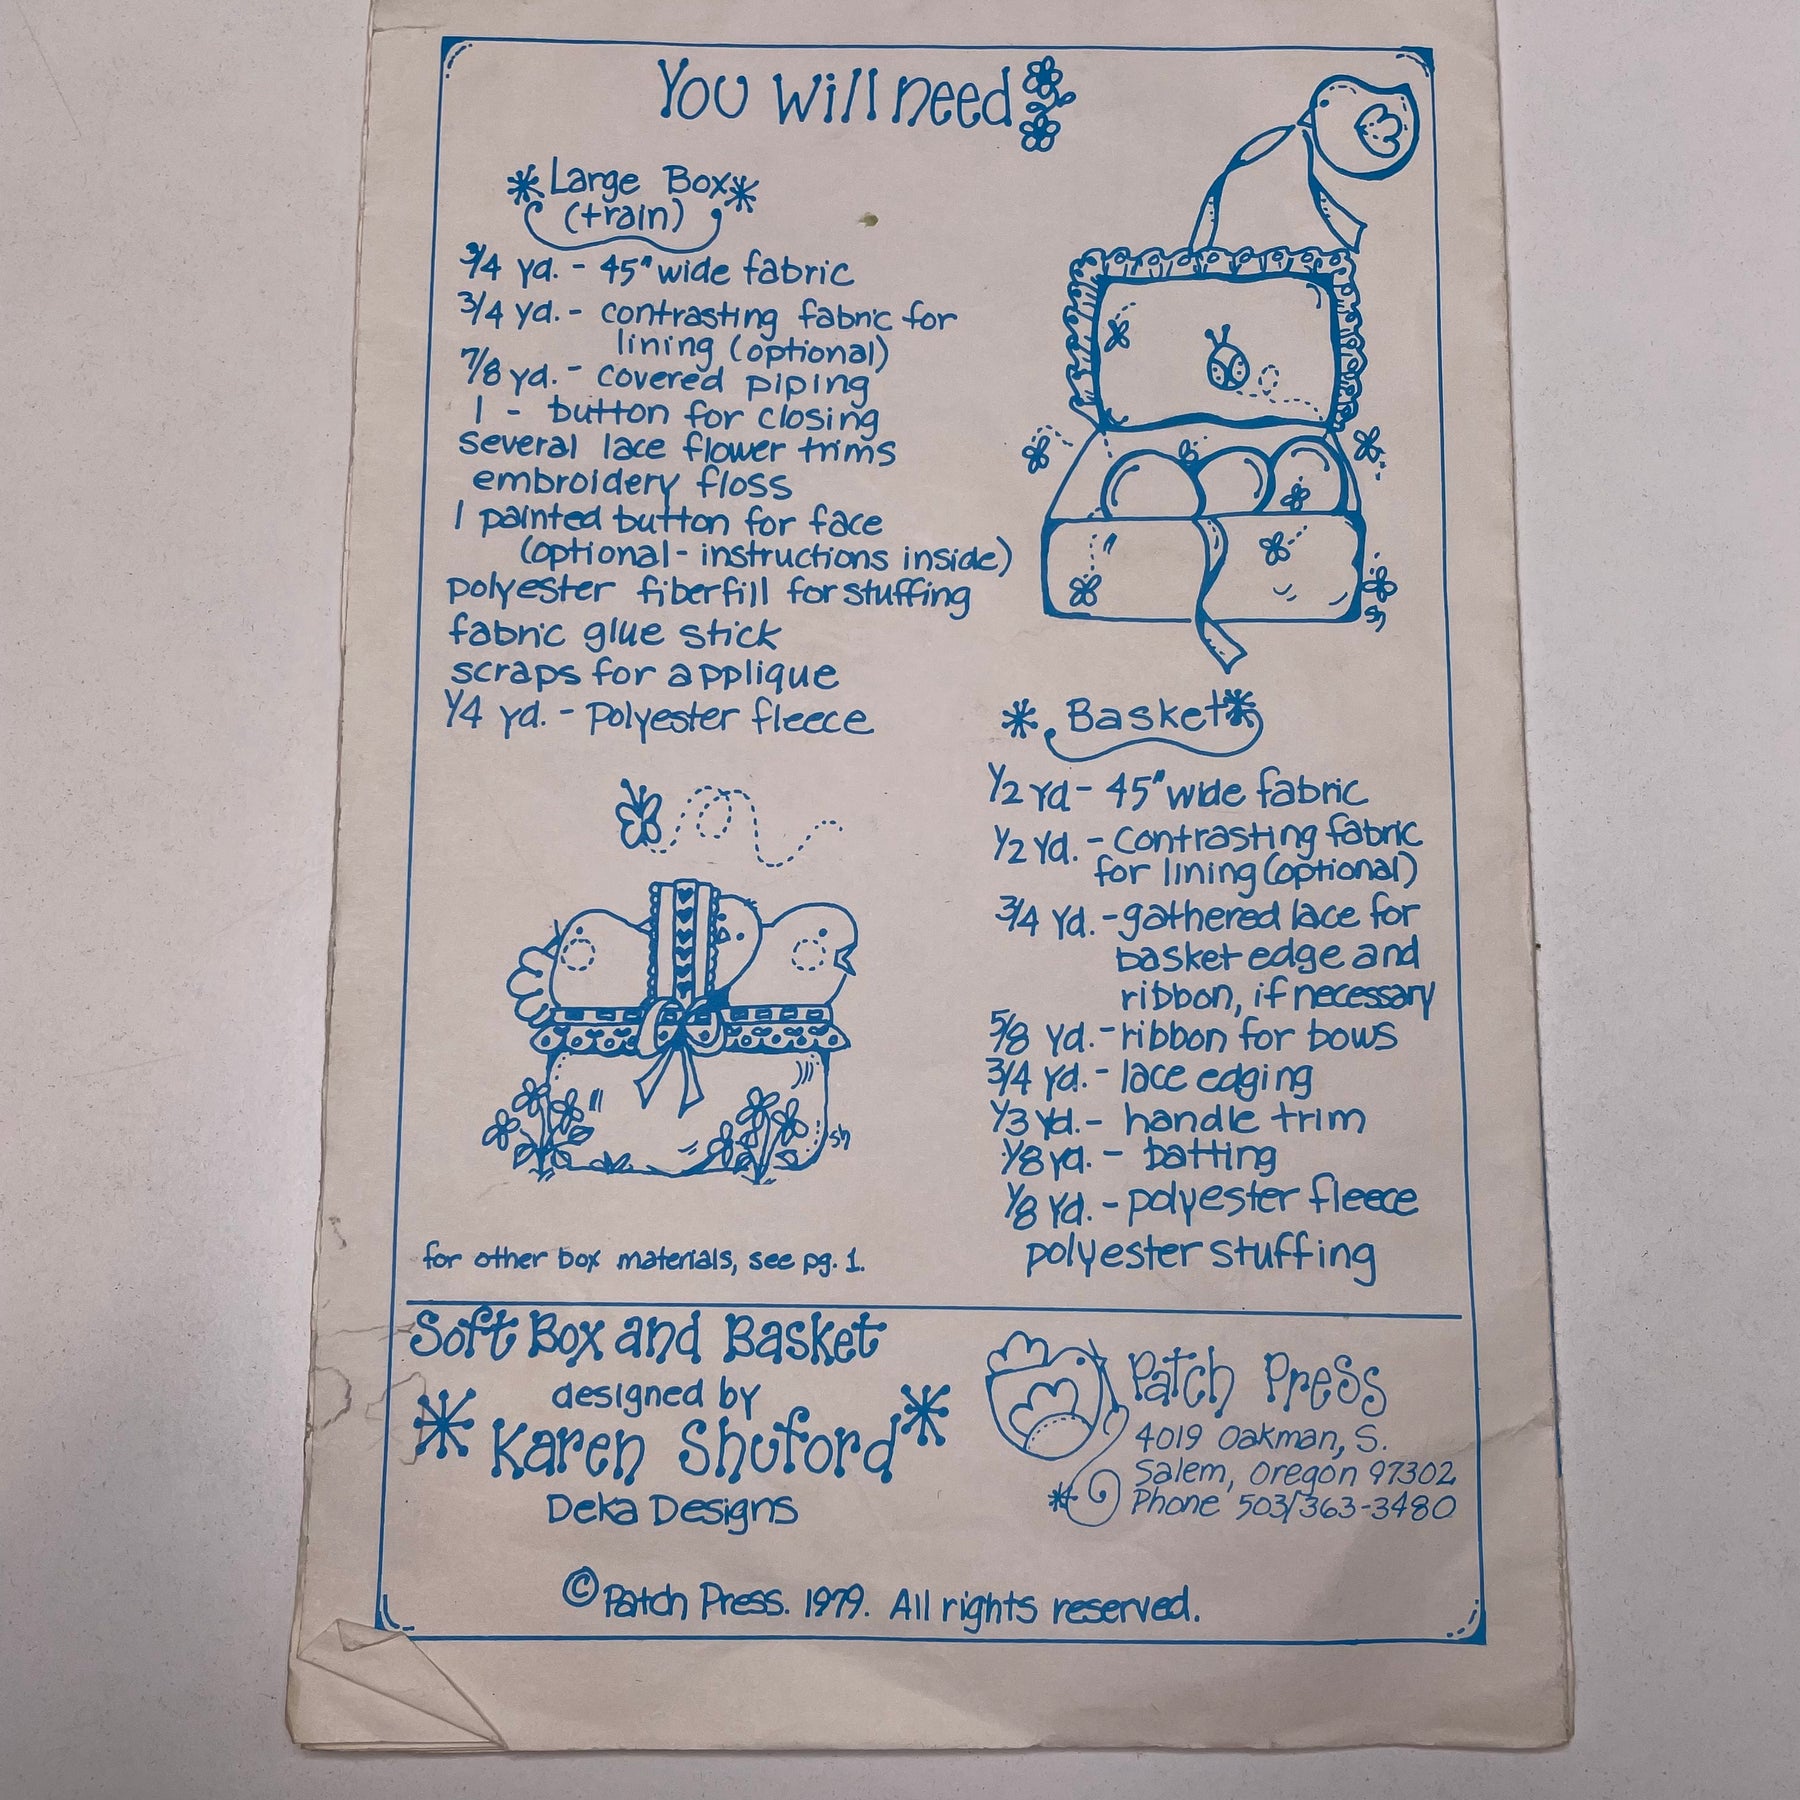 You will need
Large Box
(train)
3/4 yd. - 45" wide fabric
3/4 yd. - contrasting fabric for
lining (optional)
7/8 yd. - covered piping
1 - button for closing
several lace flower trims
embroidery floss
1 painted button for face
(optional - instructions inside)
polyester fiberfill for stuffing
fabric glue stick
scraps for applique
1/4 yd. - polyester fleece
for other box materials, see pg. 1.
sh
Basket
1/2 yd - 45" wide fabric
1/2 yd. - contrasting fabric
for lining (optional)
3/4 yd. - gathered lace for
basket edge and
ribbon, if necessary
5/8 yd. - ribbon for bows
3/4 yd. - lace edging
1/3 yd. - handle trim
1/8 yd. - batting
1/8 yd. - polyester fleece
polyester stuffing
sh
Soft Box and Basket
designed by
Karen Shuford
Deka Designs
Patch Press
4019 Oakman, S.
Salem, Oregon 97302
Phone 503/363-3480
© Patch Press. 1979. All rights reserved.